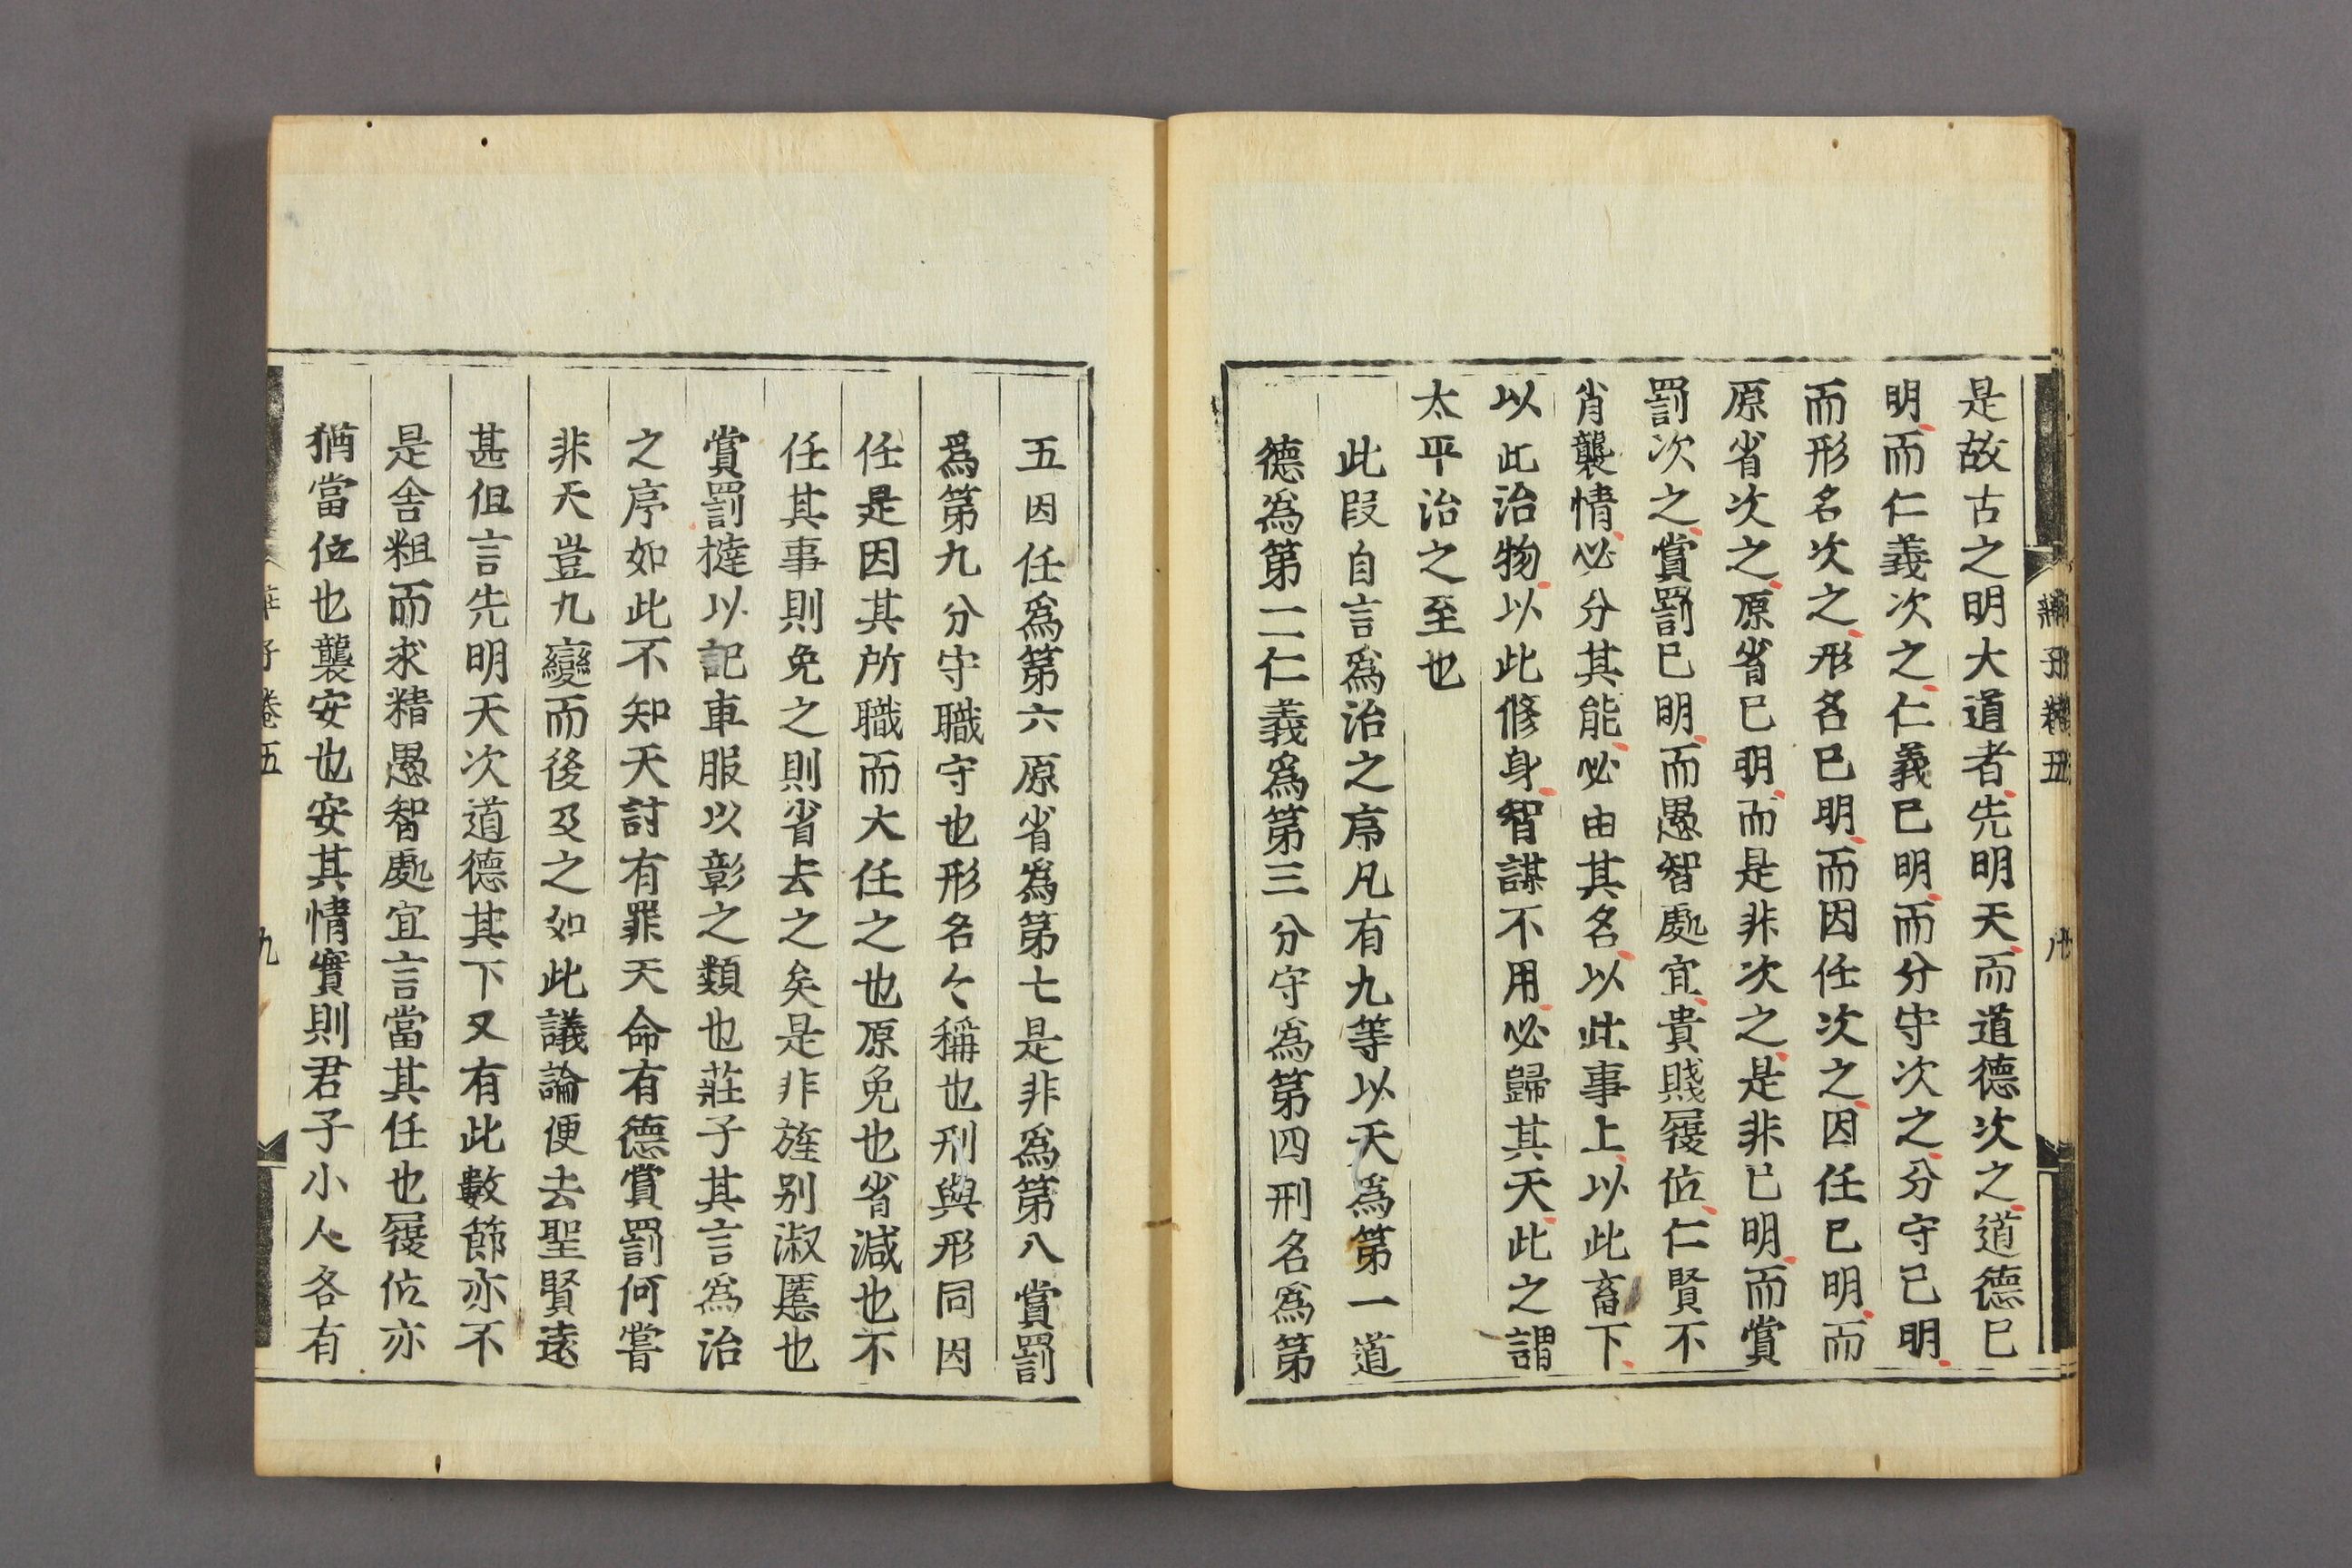 是故古之明大道者先明天而道德次之道德已
明而仁義次之仁義已明而分守次之分守已明
而形名次之形名已明而因任次之因任已明而
原省次之原省已明而是非次之是非已明而賞
罰次之賞罰已明而愚智處宜貴賤履位仁賢不
肖襲情必分其能必由其名以此事上以此畜下
以此治物以此修身智謀不用必歸其天此之謂
太平治之至也
此段自言爲治之序凡有九等以天爲第一道
德爲第二仁義爲第三分守爲第四刑名爲第
五因任爲第六原省爲第七是非爲第八賞罰
爲第九分守職守也形名々稱也刑與形同因
任是因其所職而大任之也原免也省減也不
任其事則免之則省去之矣是非旌别淑慝也
賞罰撻以記車服以彰之類也莊子其言爲治
之序如此不知天討有罪天命有德賞罰何嘗
非天豈九變而後及之如此議論便去聖賢遠
甚但言先明天次道德其下又有此數節亦不
是舍粗而求精愚智處宜言當其任也履位亦
猶當位也襲安也安其情實則君子小人各有
莊子卷五
九